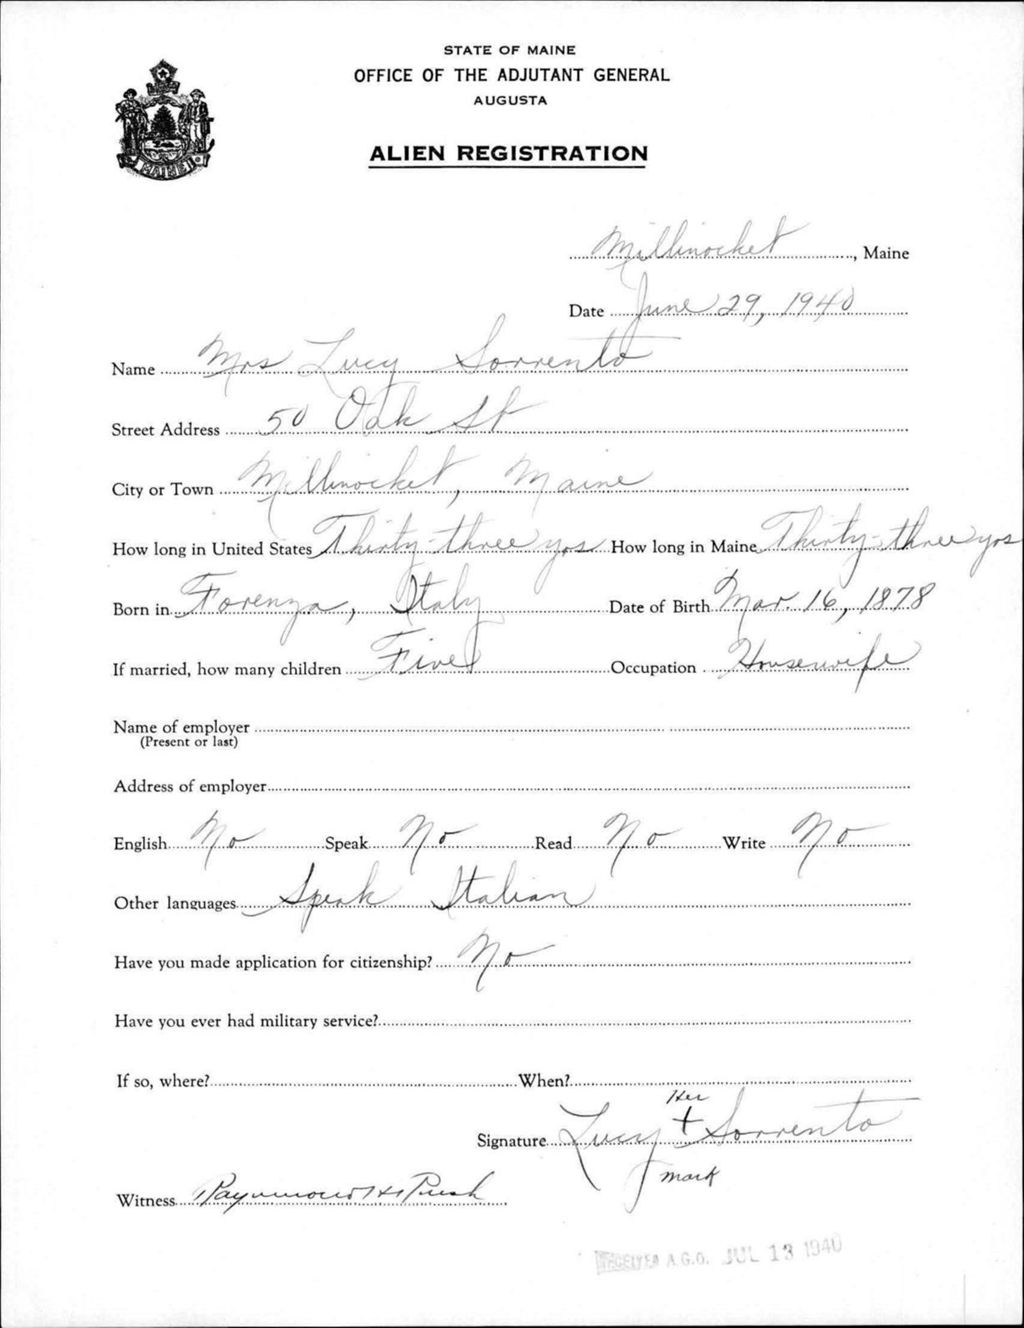 STATE OF MAINE
OFFICE OF THE ADJUTANT GENERAL
AUGUSTA
ALIEN REGISTRATION
MAINE
Millinocket, Maine
Date June 29, 1940
Name Mrs Lucy Sorrento
Street Address 50 Oak St
City or Town Millinocket, Maine
How long in United States Thirty-three yrs How long in Maine Thirty-three yrs
Born in Forenza, Italy Date of Birth Mar. 16, 1878
If married, how many children Five Occupation Housewife
Name of employer
(Present or last)
Address of employer
English No Speak No Read No Write No
Other languages Speak Italian
Have you made application for citizenship? No
Have you ever had military service?
If so, where? When?
Her
Signature Lucy + Sorrento
mark
Witness Raymond H
RECEIVED A.G.O. JUL 13 1940